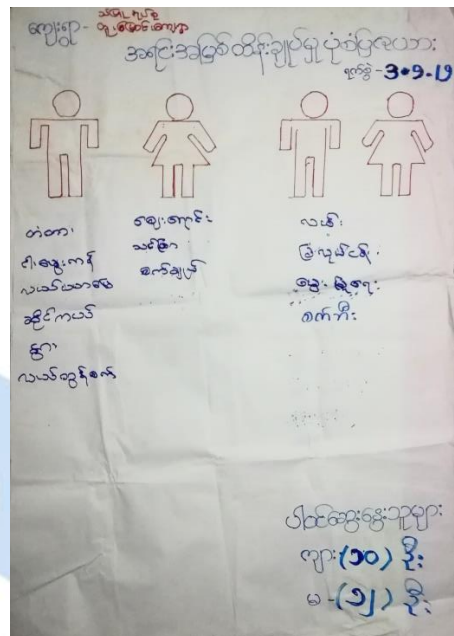 ကျေးရွာ -
အရင်းအမြစ်ထိန်းချုပ်မှု ပုံစံပြဇယား
ရက်စွဲ - 3.9.19
တံတား
ငါးမွေးကန်
လယ်ယာမြေ
ဆိုင်ကယ်
နွား
လယ်ထွန်စက်
ဈေးရောင်း
သစ်ခြံ
စက်ချုပ်
လမ်း
ခြံလုပ်ငန်း
မွေးမြူရေး
စက်ဘီး
ပါဝင်ဆွေးနွေးသူများ
ကျား (၁၀) ဦး
မ - (၁၂) ဦး